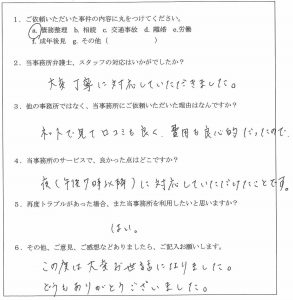 1．ご依頼いただいた事件の内容に丸をつけてください。
a.債務整理 b.相続 c.交通事故 d.離婚 e.労働
f.成年後見 g.その他（　　　　　）
2．当事務所弁護士、スタッフの対応はいかがでしたか？
大変丁寧に対応していただきました。
3．他の事務所ではなく、当事務所にご依頼いただいた理由はなんですか？
ネットで見て口コミも良く、費用も良心的だったので。
4．当事務所のサービスで、良かった点はどこですか？
夜(午後7時以降)に対応していただけたことです。
5．再度トラブルがあった場合、また当事務所を利用したいと思いますか？
はい。
6．その他、ご意見、ご感想などありましたら、ご記入お願いします。
この度は大変お世話になりました。
どうもありがとうございました。